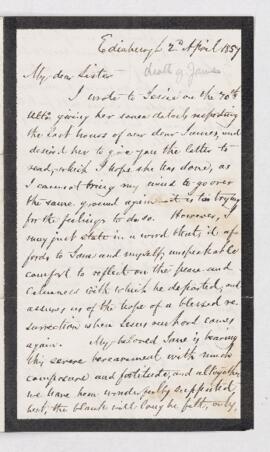 Edinburgh 2d April 1857
My dear Sister
death of James
I wrote to Jessie on the 30th
ulto giving her some details respecting
the last hours of our dear James, and
desired her to give you the letter to
read, which I hope she has done, as
I cannot bring my mind to go over
the same ground again — it is too trying
for the feelings to do so. However, I
may just state in a word that, it af-
fords to Jane and myself, unspeakable
comfort to reflect on the peace and
calmness with which he departed, and
assures us of the hope of a blessed re-
surrection when Jesus our Lord comes
again. My beloved Jane is bearing
this severe bereavement with much
composure and fortitude, and altogether
we have been wonderfully supported,
but, the blank will long be felt, only,